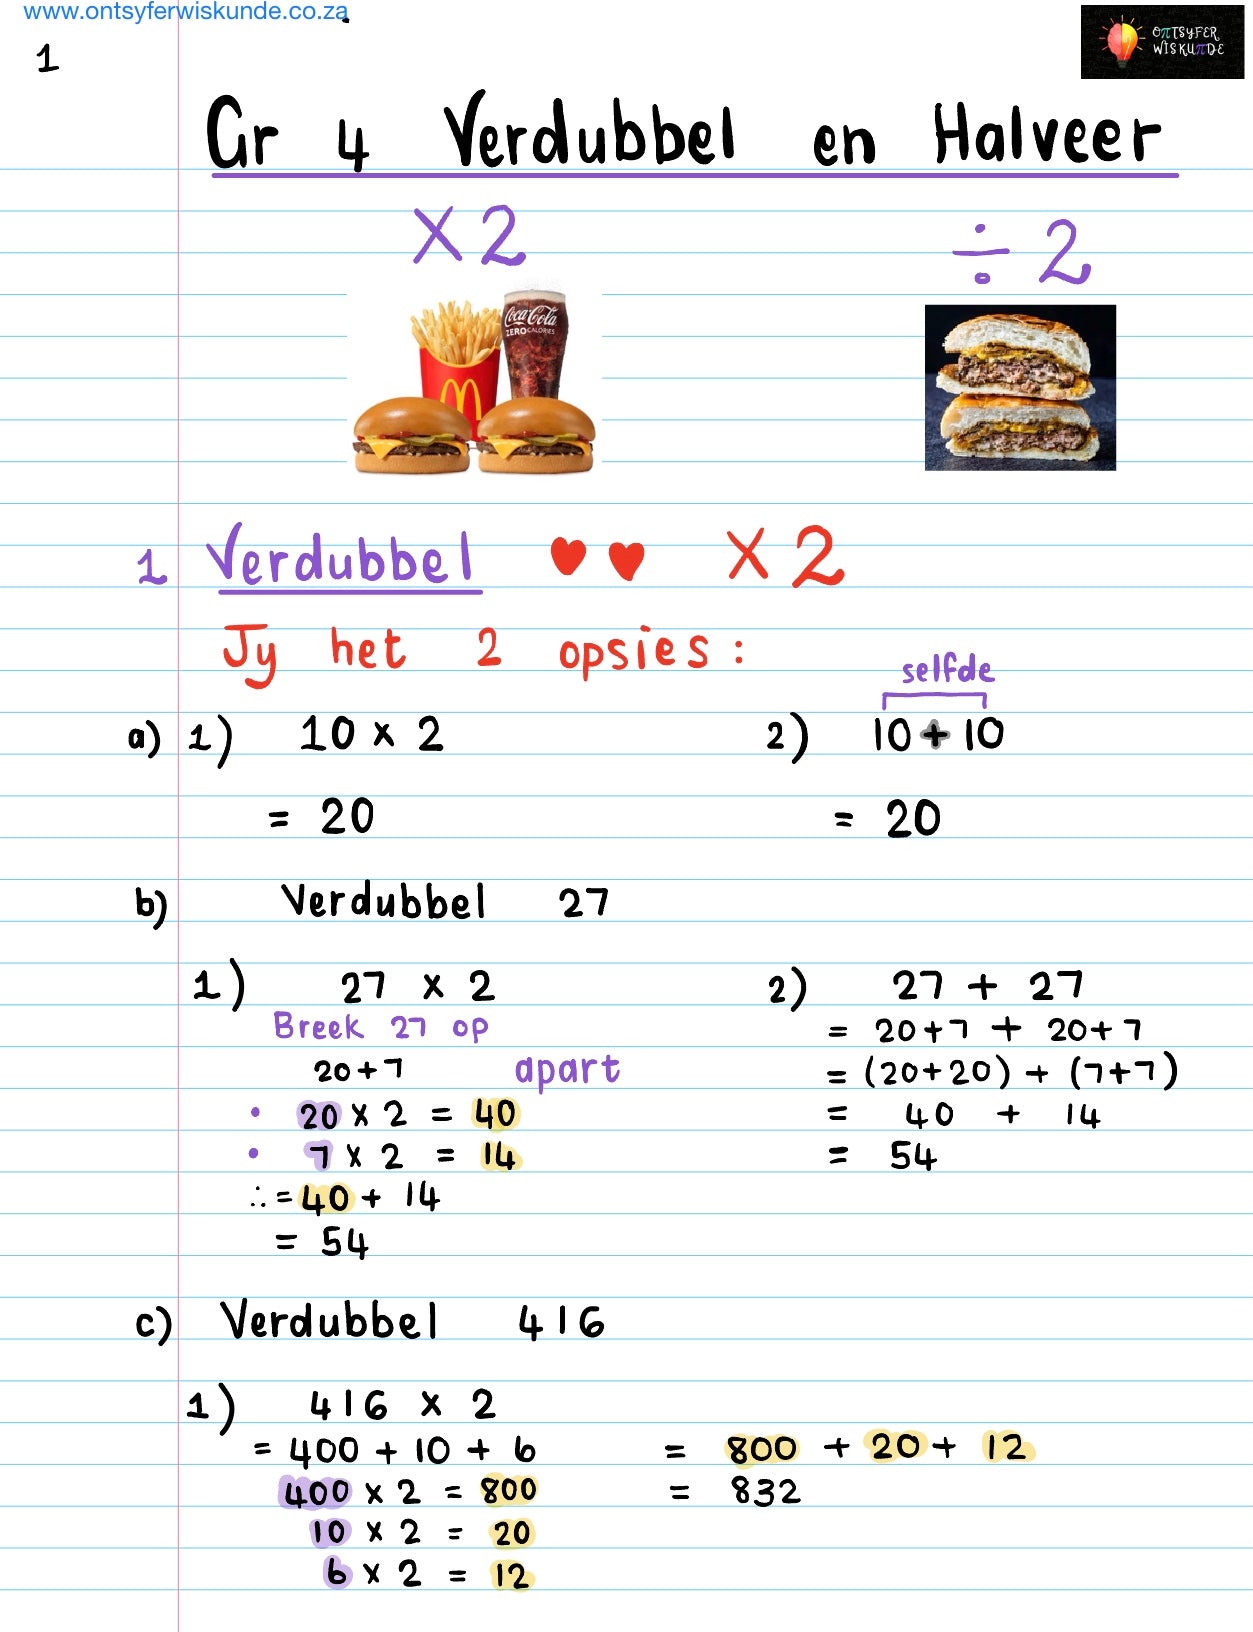 www.ontsyferwiskunde.co.za
OπTSYFER
WISKUπDE
1
Gr 4 Verdubbel en Halveer
×2 ÷2
Coca-Cola
ZERO CALORIES
1 Verdubbel ♥♥ ×2
Jy het 2 opsies:
selfde
a) 1) 10 × 2 2) 10 + 10
= 20 = 20
b) Verdubbel 27
1) 27 × 2 2) 27 + 27
Breek 27 op = 20+7 + 20+7
20+7 apart = (20+20) + (7+7)
• 20 × 2 = 40 = 40 + 14
• 7 × 2 = 14 = 54
∴ = 40 + 14
= 54
c) Verdubbel 416
1) 416 × 2
= 400 + 10 + 6 = 800 + 20 + 12
400 × 2 = 800 = 832
10 × 2 = 20
6 × 2 = 12